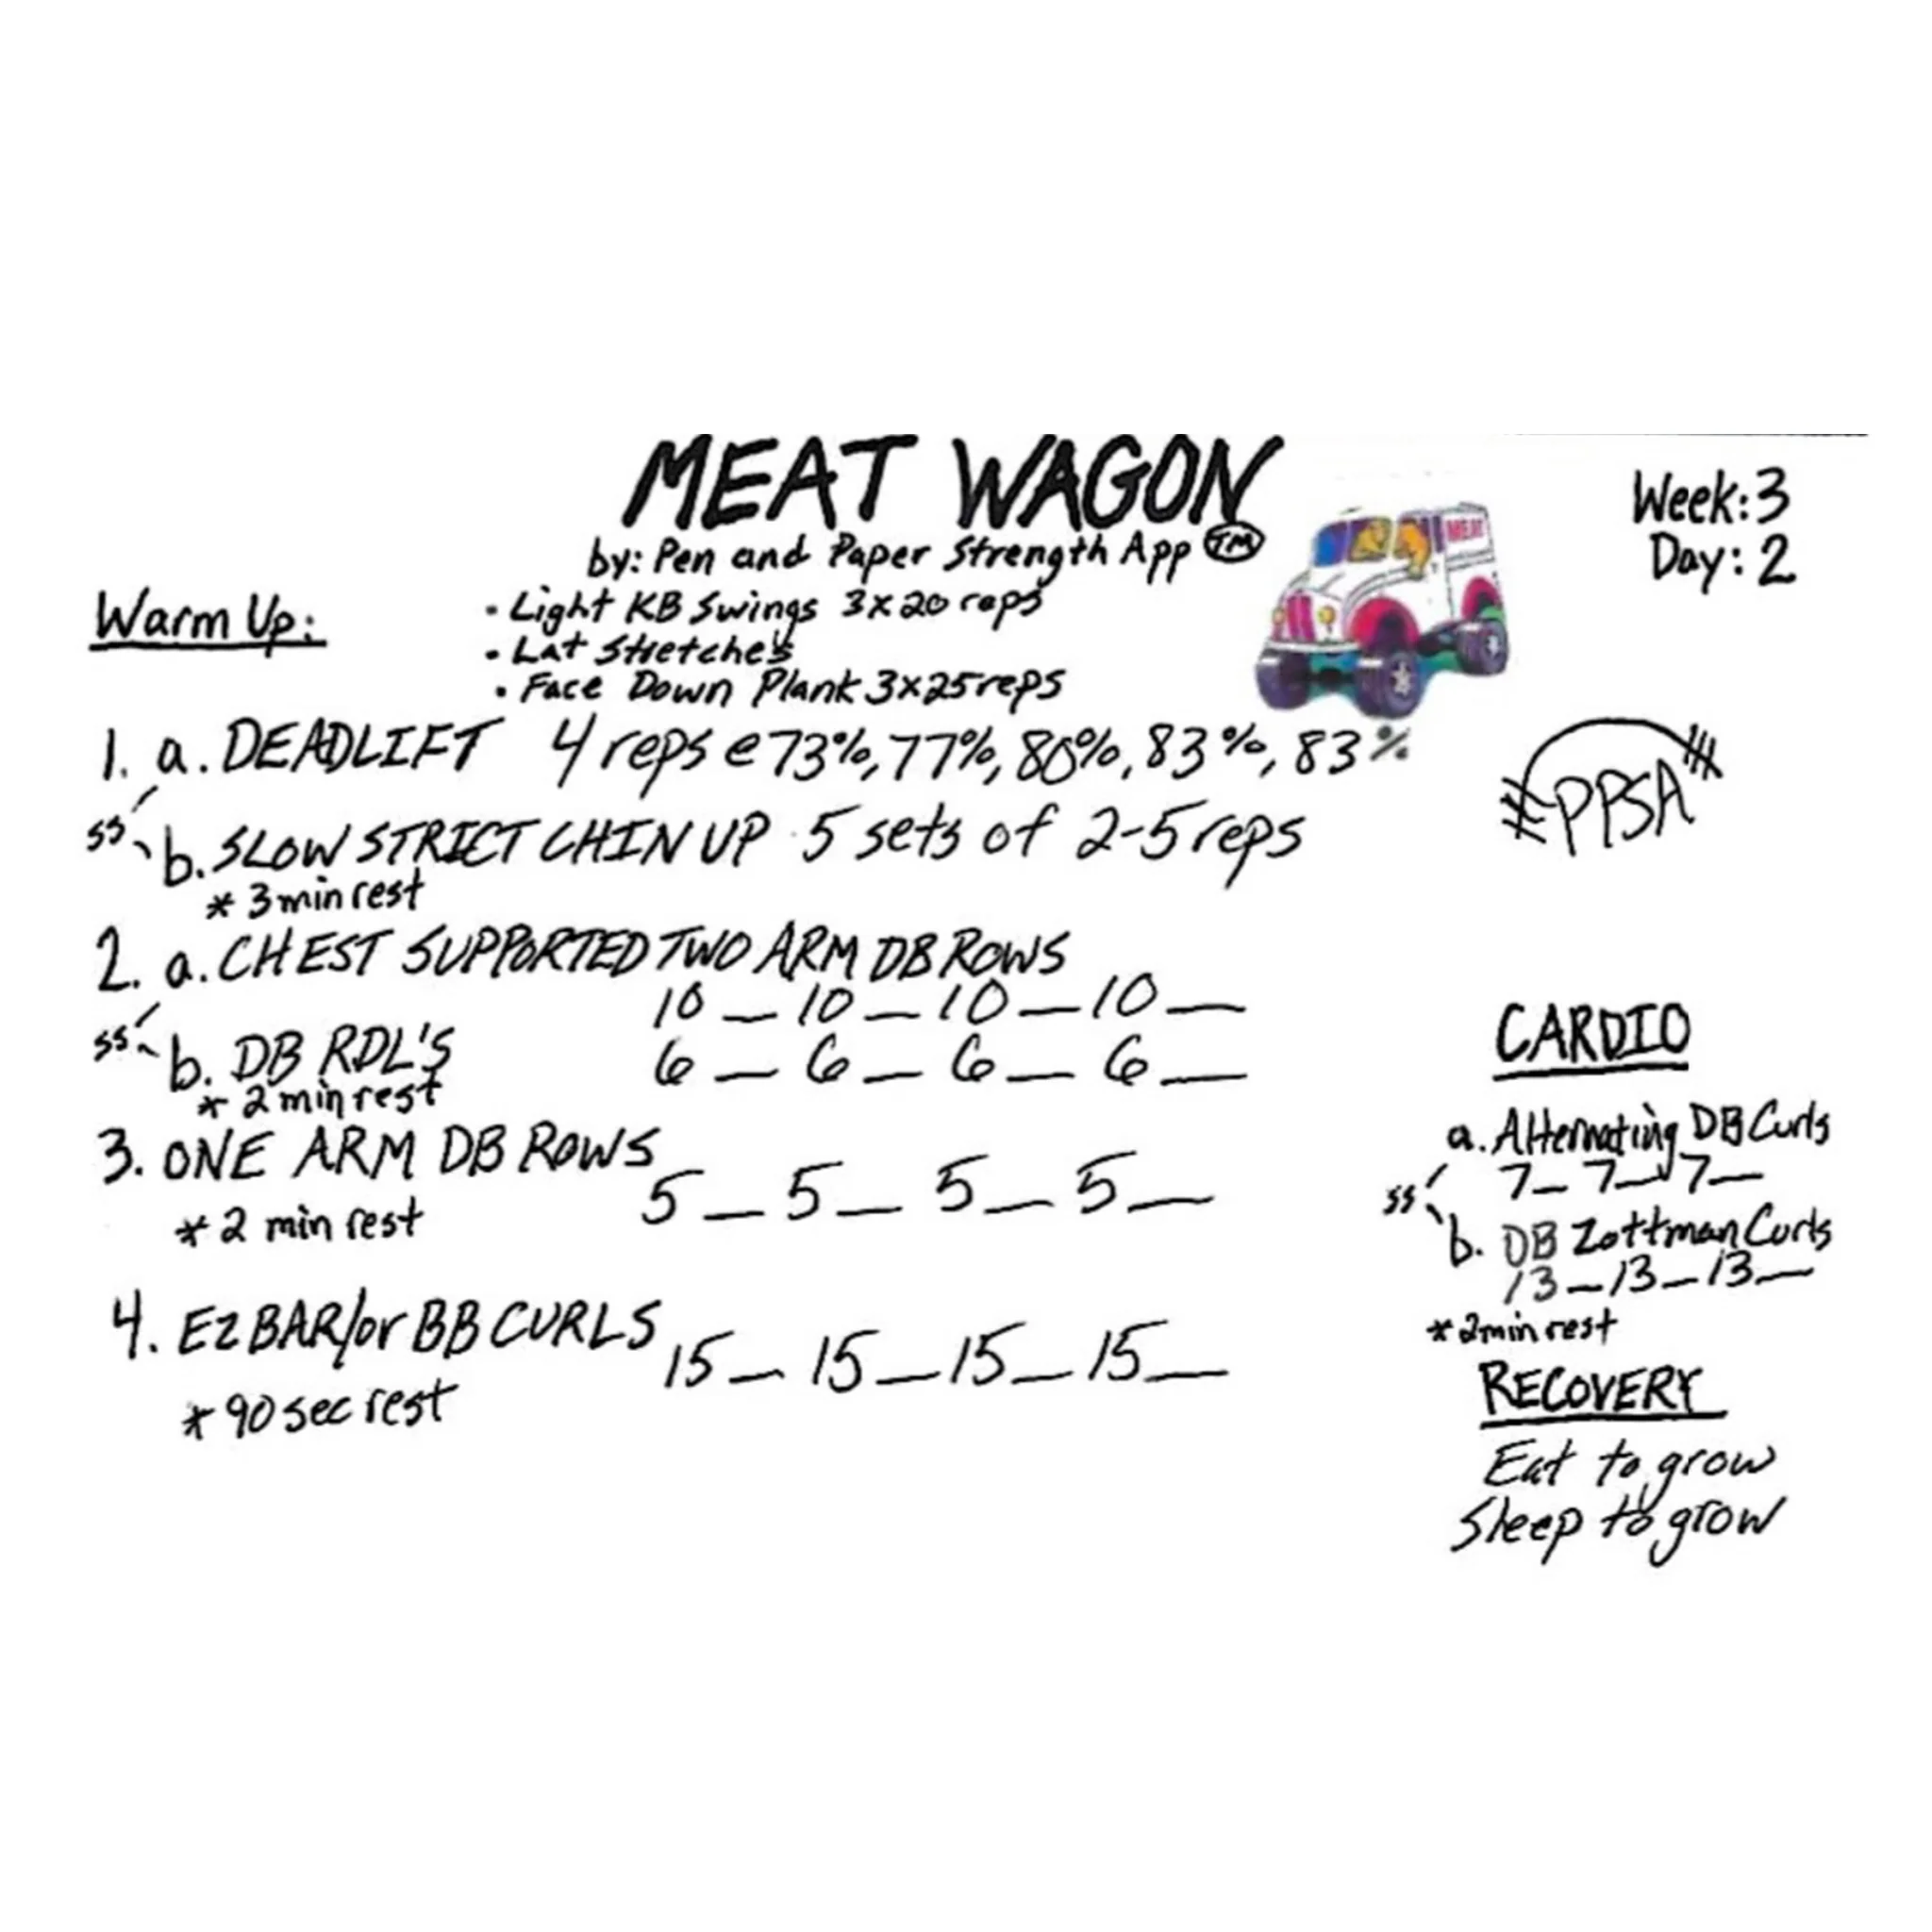 MEAT WAGON
by: Pen and Paper Strength App TM
MEAT
Week: 3
Day: 2
Warm Up:
• Light KB Swings 3x20 reps
• Lat Stretches
• Face Down Plank 3x25 reps
1. a. DEADLIFT 4 reps @ 73%, 77%, 80%, 83%, 83%
ss
b. SLOW STRICT CHIN UP 5 sets of 2-5 reps
* 3 min rest
PPSA
2. a. CHEST SUPPORTED TWO ARM DB ROWS
10 _ 10 _ 10 _ 10 _
ss
b. DB RDL'S 6 _ 6 _ 6 _ 6 _
* 2 min rest
3. ONE ARM DB ROWS 5 _ 5 _ 5 _ 5 _
* 2 min rest
4. EZ BAR/or BB CURLS 15 _ 15 _ 15 _ 15 _
* 90 sec rest
CARDIO
a. Alternating DB Curls
7 _ 7 _ 7 _
ss
b. DB Zottman Curls
13 _ 13 _ 13 _
* 2 min rest
RECOVERY
Eat to grow
Sleep to grow